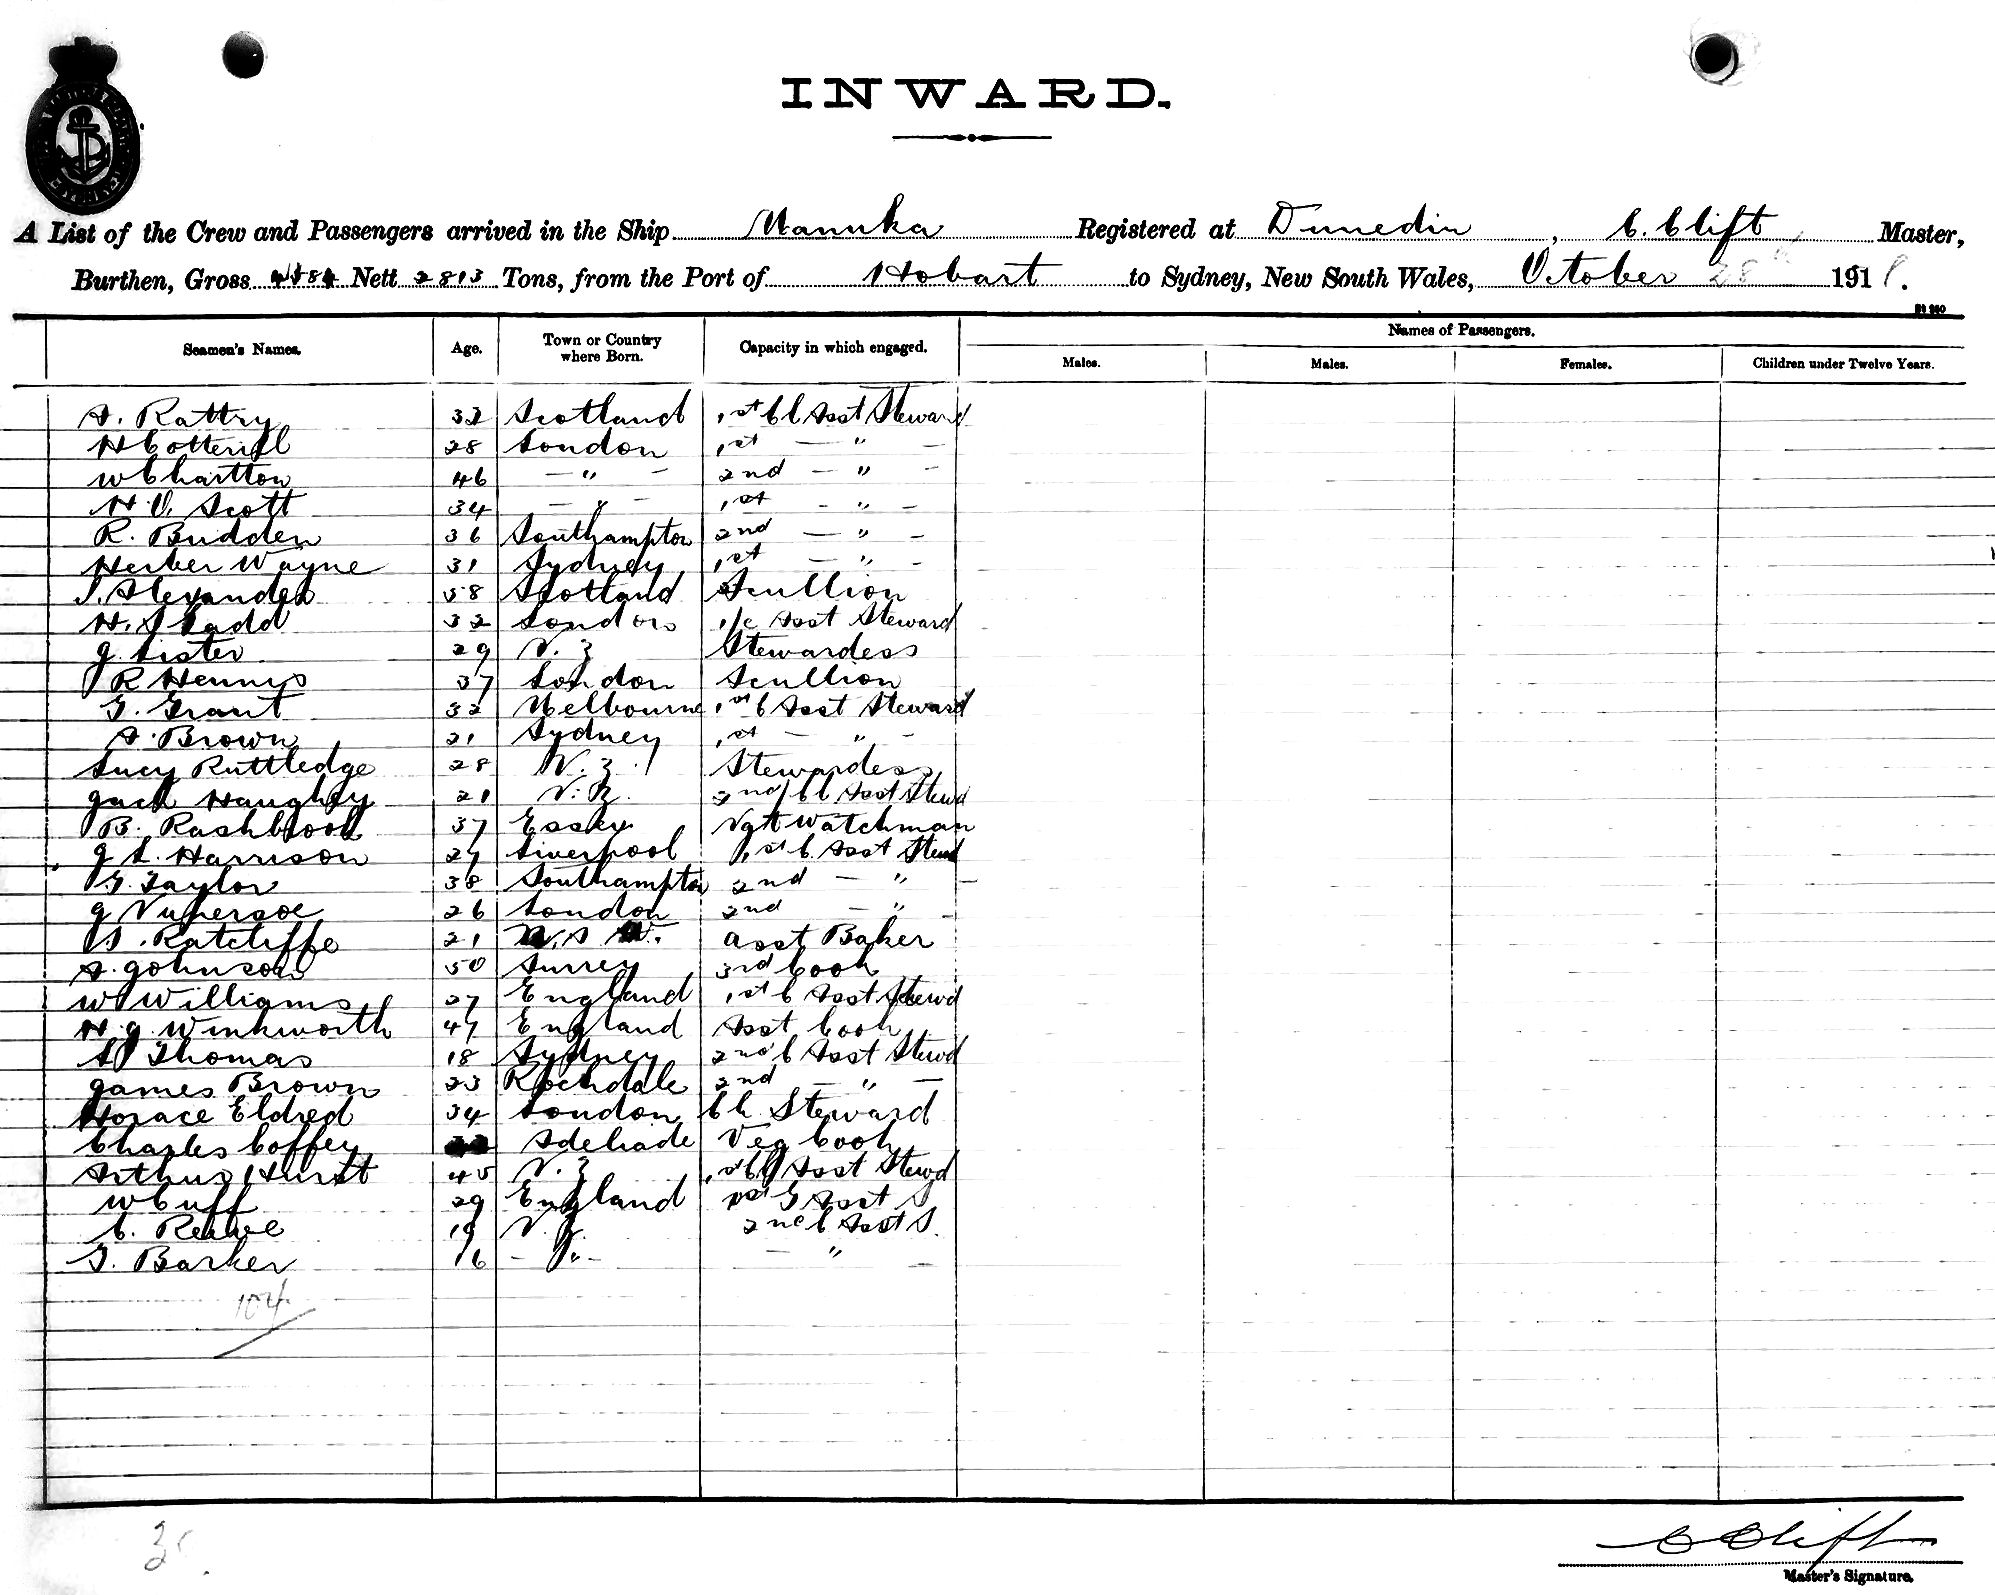 INWARD.
A List of the Crew and Passengers arrived in the Ship Manuka Registered at Dunedin, C. Clift Master,
Burthen, Gross Nett 2813 Tons, from the Port of Hobart to Sydney, New South Wales, October 28 191
Names of Passengers.
Seamen's Names. Age. Town or Country where Born. Capacity in which engaged. Males. Males. Females. Children under Twelve Years.
A. Rattry 32 Scotland 1st Cl Asst Steward
H Cotterill 28 London 1st — " —
W Chartton 46 — " — 2nd — " —
H. V. Scott 34 — " — 1st — " —
R. Budden 36 Southampton 2nd — " —
Herber Wayne 31 Sydney 1st — " —
J. Alexander 58 Scotland Scullion
H. Shadd 32 London 1/c Asst Steward
J. Lister 29 N. Z Stewardess
R Hennys 37 London Scullion
G. Grant 32 Melbourne 1st C Asst Steward
A. Brown 21 Sydney 1st — " —
Lucy Ruttledge 28 N. Z. Stewardess
Jack Haughey 21 N. Z. 2nd Cl Asst Stewd
B. Rashbrook 37 Essex Ngt Watchman
J L. Harrison 27 Liverpool 1st C. Asst Stewd
G. Taylor 38 Southampton 2nd — " —
J 26 London 2nd — " —
Ratcliffe 21 N. S W. Asst Baker
A. Johnson 50 Surrey 3rd Cook
W Williams 27 England 1st C Asst Stewd
H. J. Winkworth 47 England Asst Cook
L Thomas 18 Sydney 2nd C Asst Stewd
James Brown 23 Rochdale 2nd — " —
Horace Eldred 34 London Ch Steward
Charles Coffey Adeliade Veg Cook
Arthur Hurst 45 N. Z 1st Cl Asst Stewd
W Cuff 29 England 1st G Asst S
C. Reeve 19 N. Z. 2nd C Asst S.
G. Barker 16 — " — — " —
104
C Clift
Master's Signature.